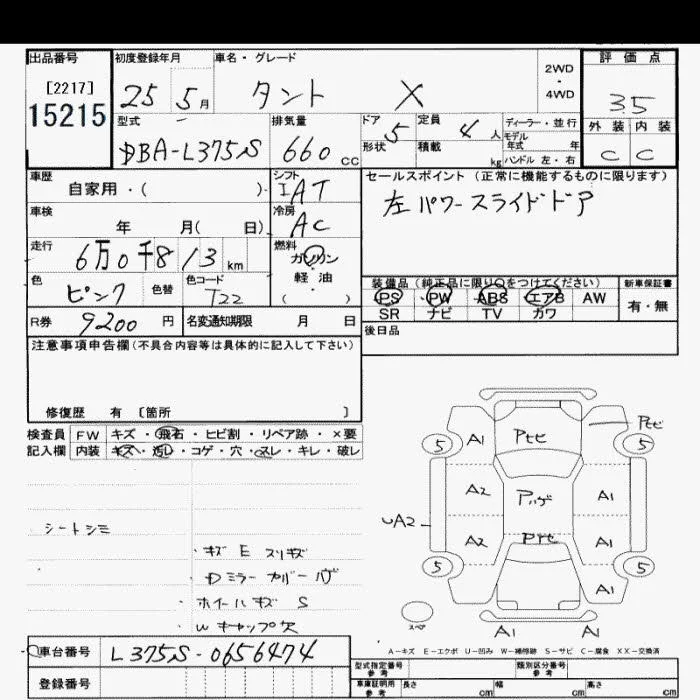 出品番号 初度登録年月 車名・グレード 2WD・4WD 評価点
[2217]
15215 25 5月 タント X 35
型式 排気量 ドア形状 5 定員 4人 積載 kg ディーラー・並行 モデル年式 年 ハンドル 左・右 外装 内装
DBA-L375S 660cc C C
車歴 シフト セールスポイント(正常に機能するものに限ります)
自家用・( ) IAT 左パワースライドドア
車検 冷房
年 月( 日) AC
走行 燃料
6万0千813km ガソリン
軽油
( )
色 色替 色コード 装備品(純正品に限り○をつけてください) 新車保証書
ピンク T22 PS PW ABS エアB AW 有・無
SR ナビ TV カワ
R券 9200円 名変通知期限 月 日 後日品
注意事項申告欄(不具合内容等は具体的に記入して下さい)
修復歴 有 [箇所 ]
検査員 FW キズ・飛石・ヒビ割・リペア跡・×要
記入欄 内装 キズ・汚レ・コゲ・穴・スレ・キレ・破レ
シートシミ
・キズ E スリキズ
・Dミラーカバー
・ホイールキズ S
・Wキャップ欠
A1 Pセヒ Pセヒ
5 5
A2 Pハゲ A1
UA2
A2 Pヤセ A1
5 5
A1
スペア A1 A1
A-キズ E-エクボ U-凹み W-補修跡 S-サビ C-腐食 XX-交換済
車台番号 L375S-0656474 型式指定番号 参考 類別区分番号 参考
登録番号 車庫証明用 参考 長さ cm 幅 cm 高さ cm